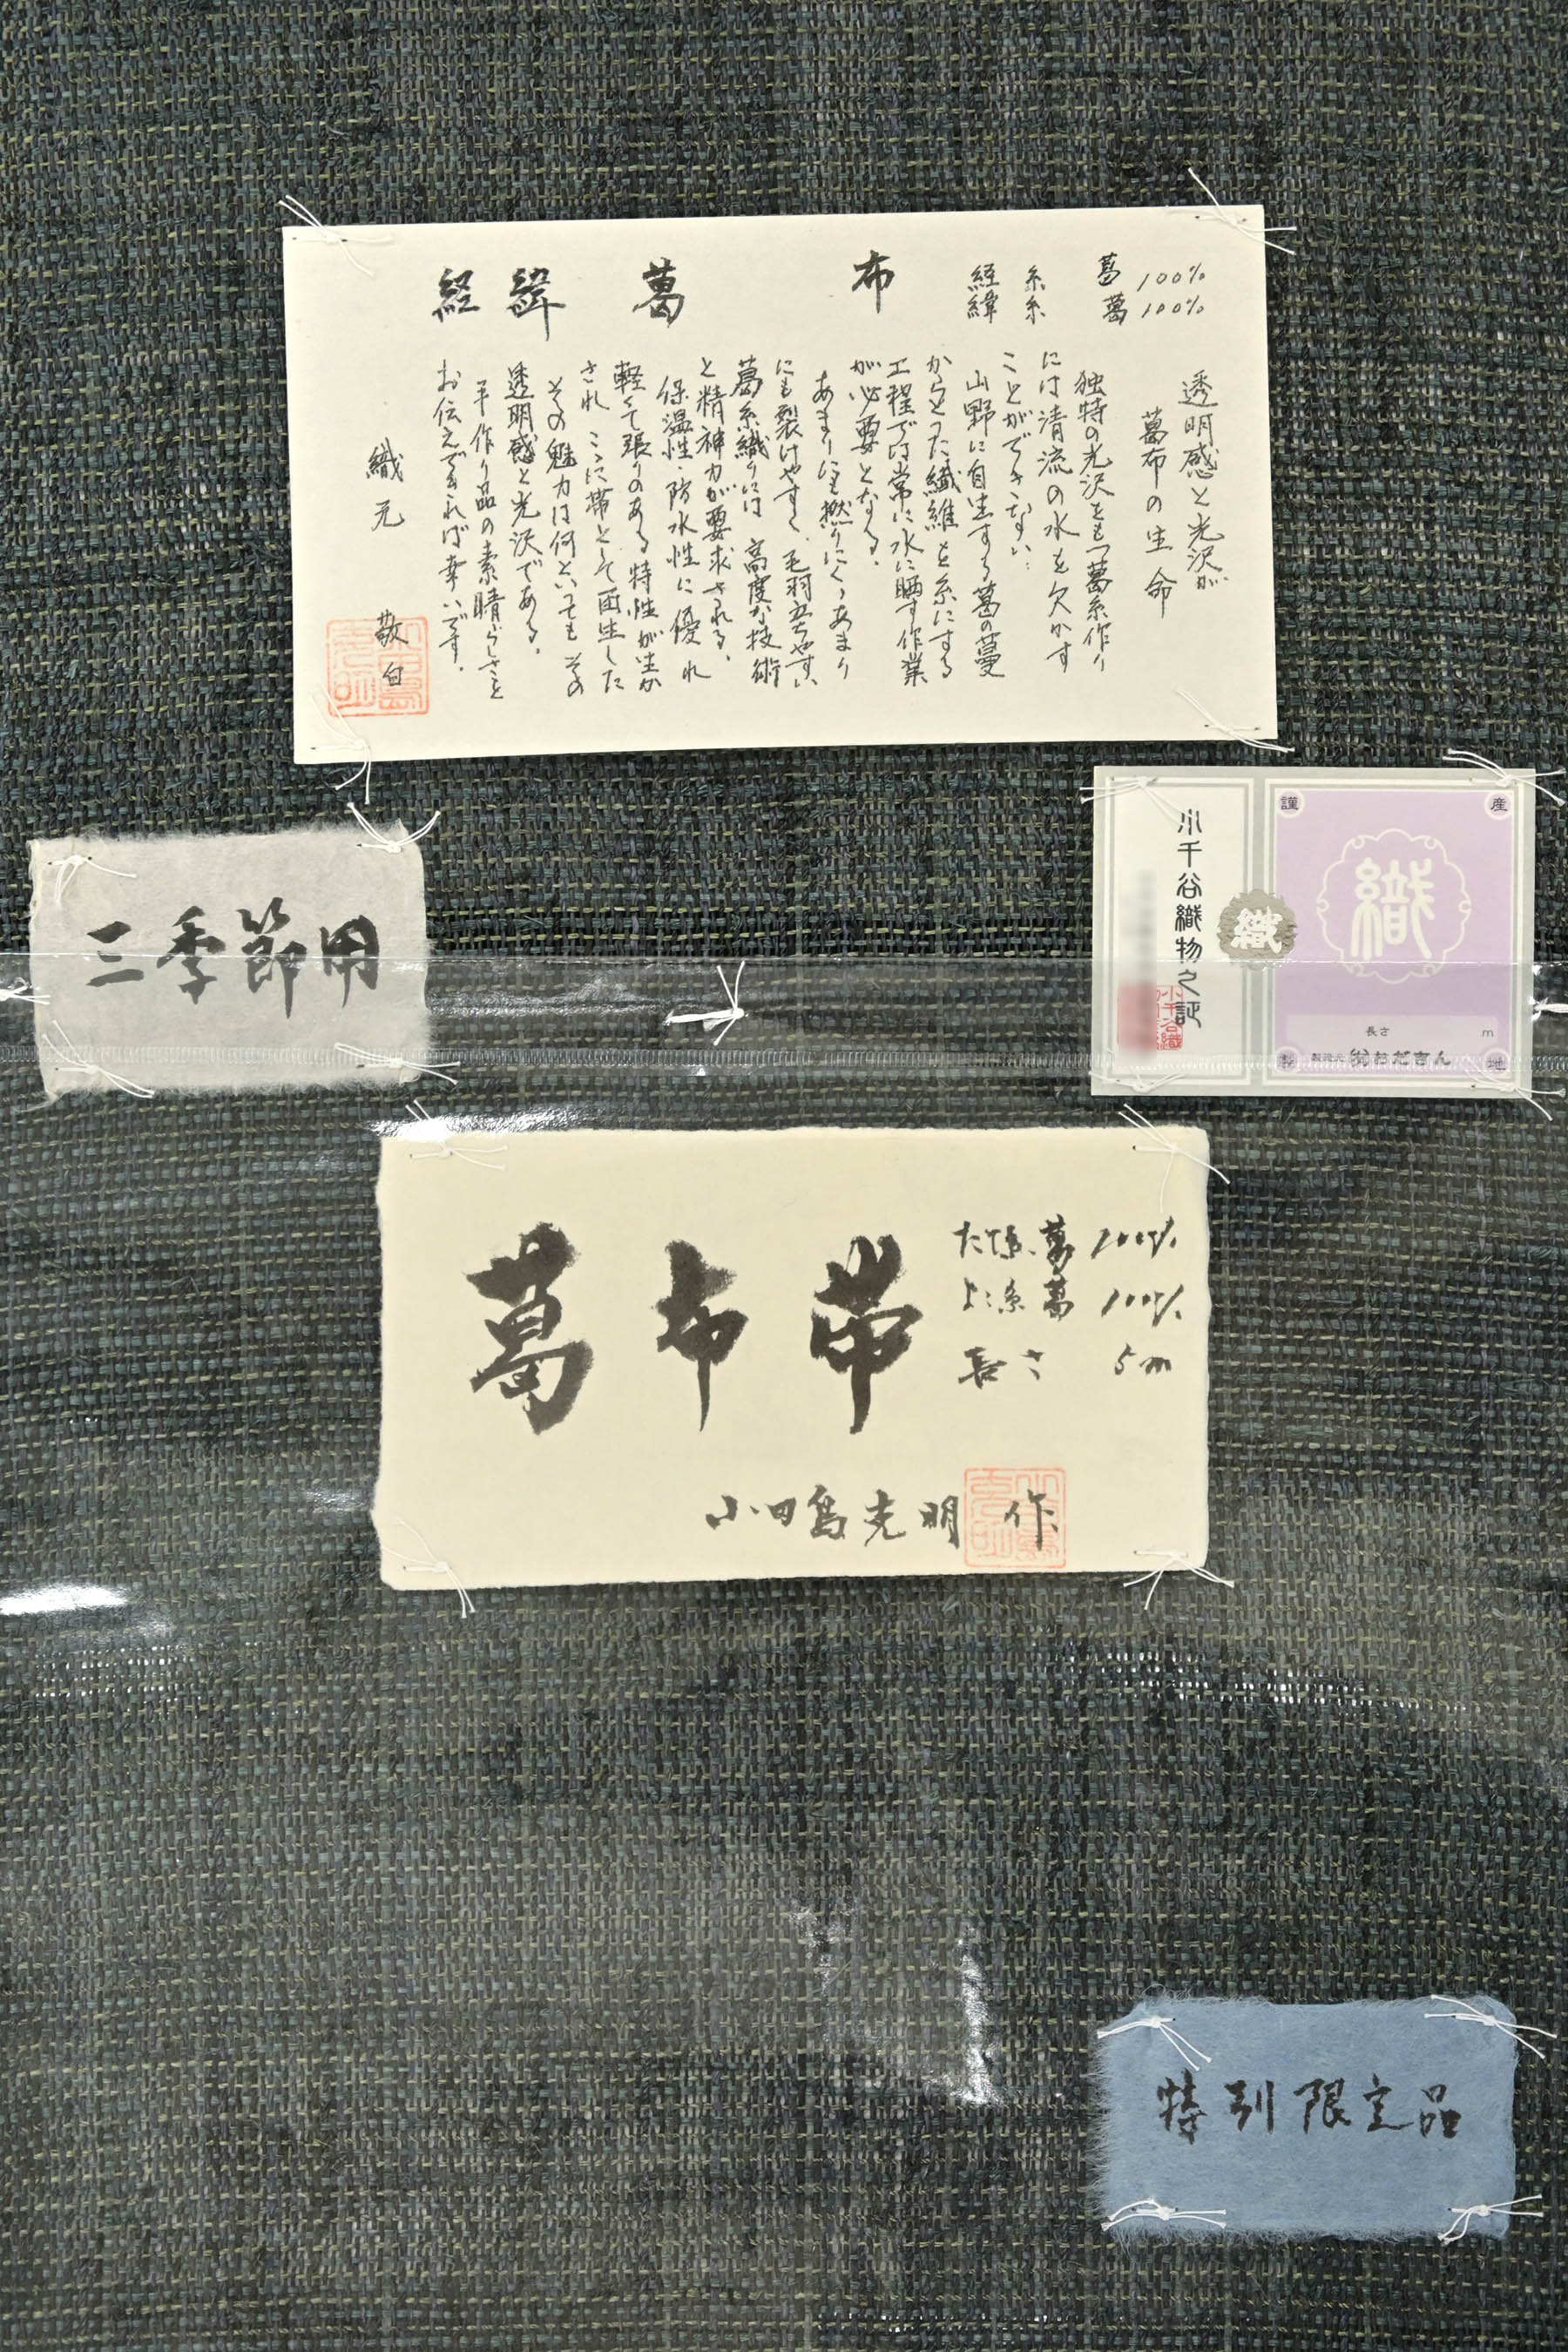 経緯 葛 布
経糸 葛 100%
緯糸 葛 100%
透明感と光沢が
葛布の生命
独特の光沢をもつ葛糸作り
には清流の水を欠かす
ことができない:
山野に自生する葛の蔓
からとった繊維を糸にする
工程では常に水に晒す作業
が必要となる。
あまりにも撚りにくくあまり
にも裂けやすく、毛羽立ちやすい
葛糸織りには 高度な技術
と精神力が要求される。
保温性・防水性に優れ
軽くて張りのある特性が生か
され ここに帯として再生した
その魅力は何といっても その
透明感と光沢である。
手作り品の素晴らしさを
お伝えできれば幸いです。
織元 敬白
三季節用
謹 産
織
織
小千谷織物之証
小千谷織
長さ m
製造元 ㈱おださん
地
葛布帯
たて糸、葛 100%
よこ糸 葛 100%
長さ 5m
小田島克明 作
特別限定品